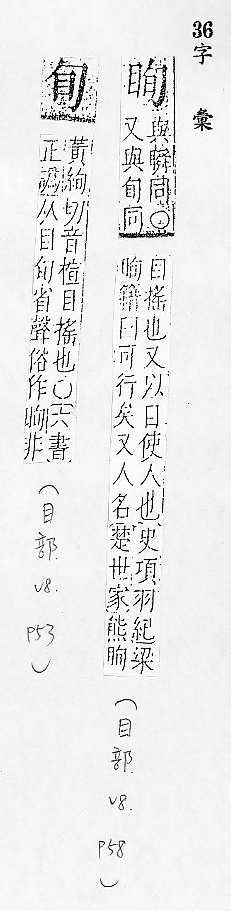 36字彙
眴
與瞬同○
又與旬同
目搖也又以目使人也史項羽紀梁
眴籍曰可行矣又人名楚世家熊眴
(目部 v8. P58)
旬
黃絢切音植目搖也○六書
正譌从目勻省聲俗作眴非
(目部 v8. P53)